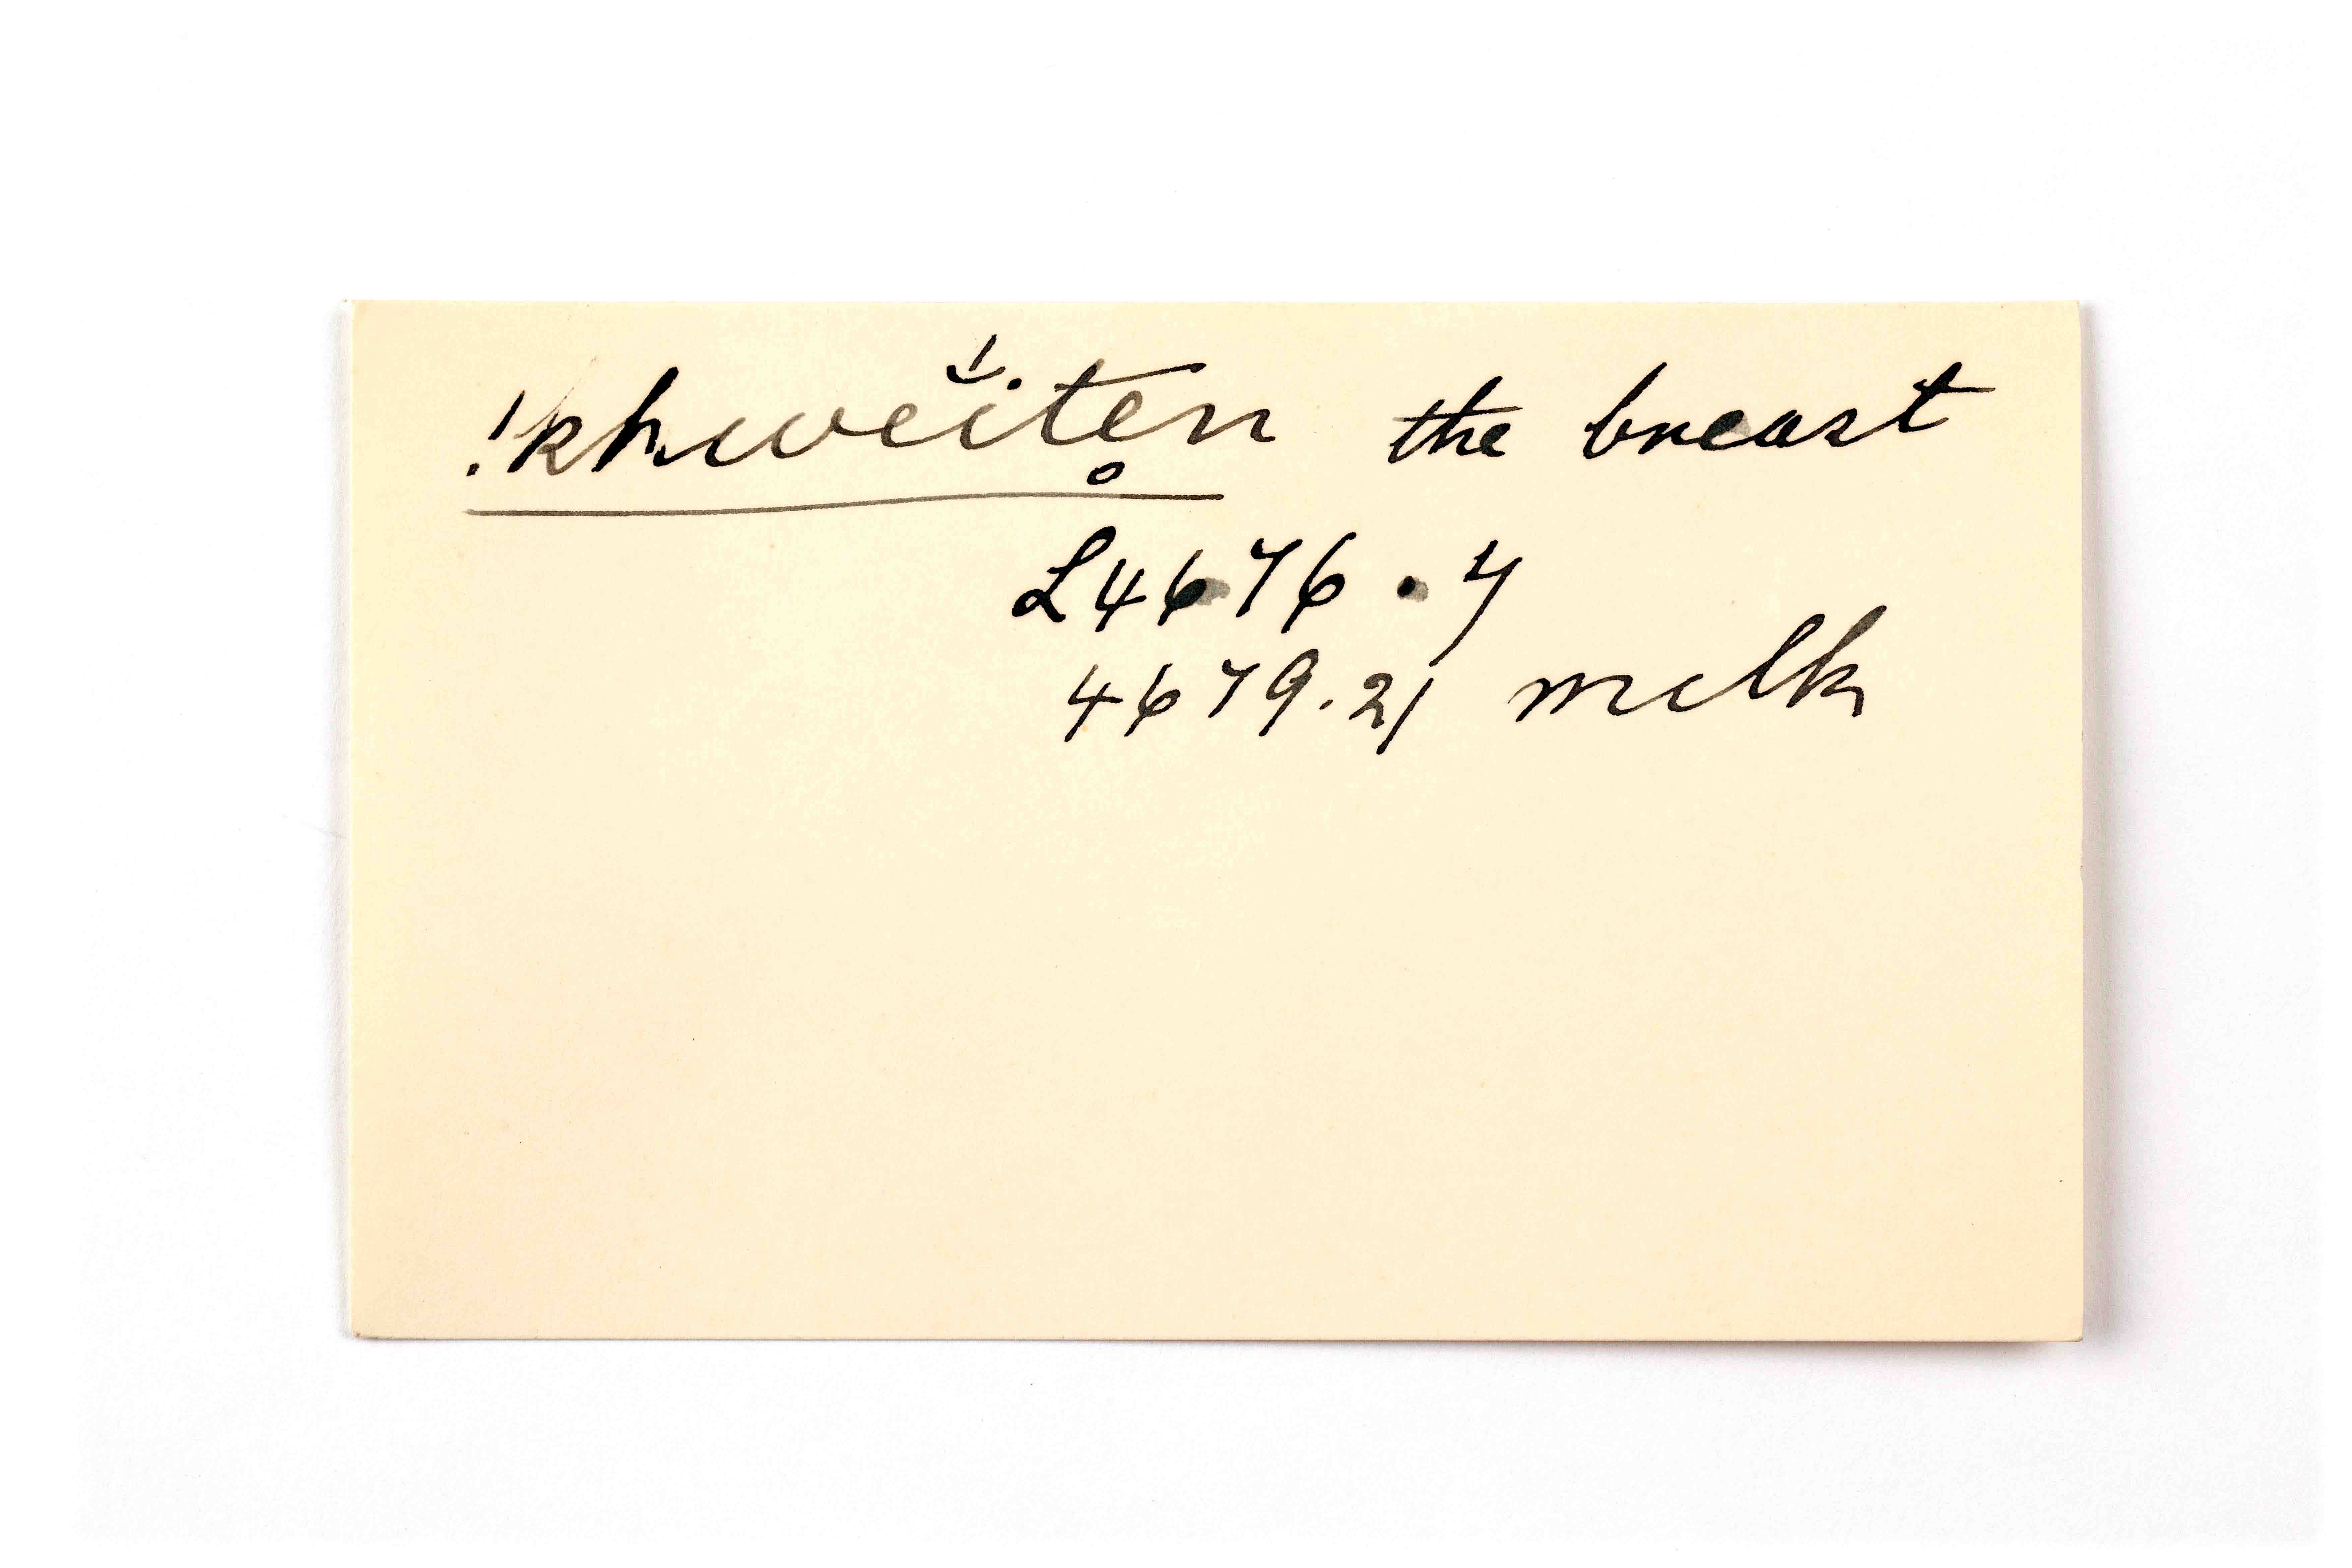 !khwĕ́itẹn the breast
L4676.7
4679.21 milk